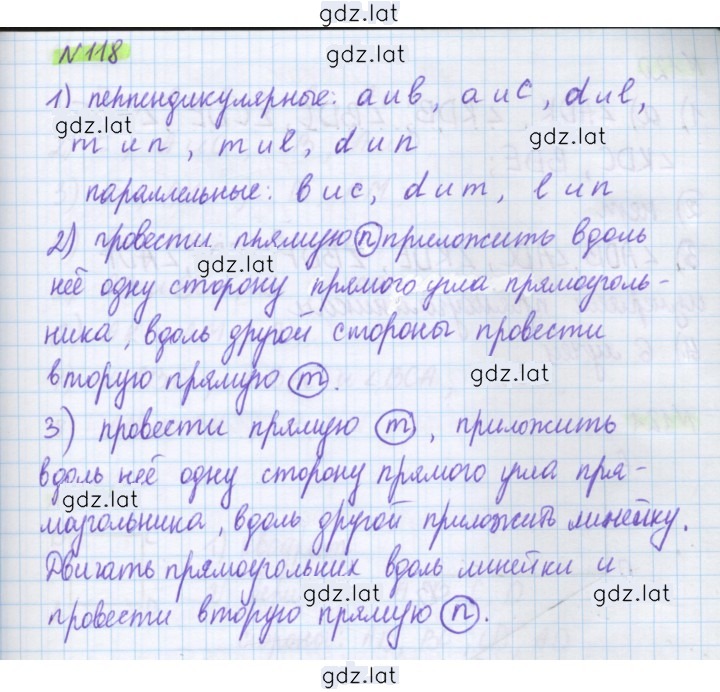 gdz.lat
N 118
gdz.lat
1) перпендикулярные: a и в, a и c, d и l,
gdz.lat
gdz.lat
m и n, m и l, d и n
параллельные: в и c, d и m, l и n
2) провести прямую n приложить вдоль
gdz.lat
неё одну сторону прямого угла прямоуголь-
ника, вдоль другой стороны провести
вторую прямую m.
gdz.lat
3) провести прямую m, приложить
вдоль неё одну сторону прямого угла пря-
gdz.lat
моугольника, вдоль другой приложить линейку.
Двигать прямоугольник вдоль линейки и
gdz.lat
gdz.lat
провести вторую прямую n.
gdz.lat